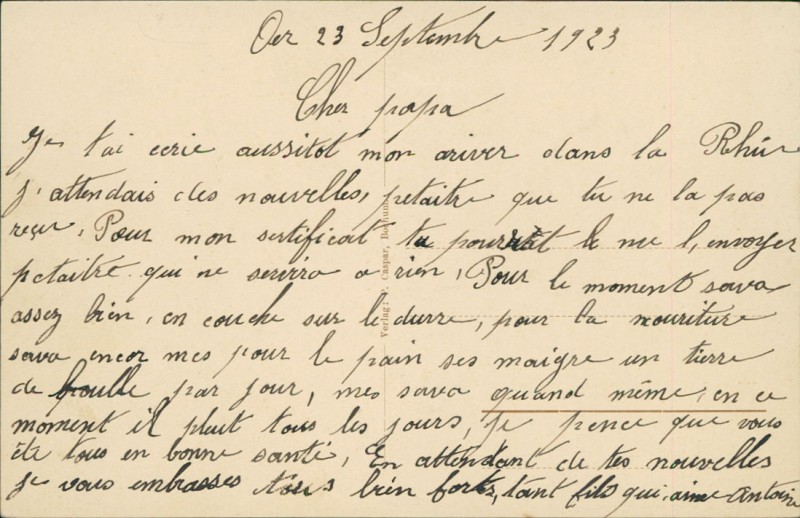 Oer 23 Septembre 1923
Cher papa
Je t'ai ecrie aussitot mon ariver dans la Rhür
j'attendais des nouvelles, petaitre que tu ne la pas
reçu, Pour mon sertificat tu pourrat le me l, envoyer
petaitre qui ne servira a rien, Pour le moment sava
assez bien, on couche sur le durre, pour la nouriture
sava encor mes pour le pain ses maigre un tierre
de boulle par jour, mes sava quand même, en ce
moment il pleut tous les jours, je pence que vous
ète tous en bonne santé, En attendant de tes nouvelles
je vous embrasses tous bien forts, tant fils qui, aime Antoine
Verlag: P. Caspar,